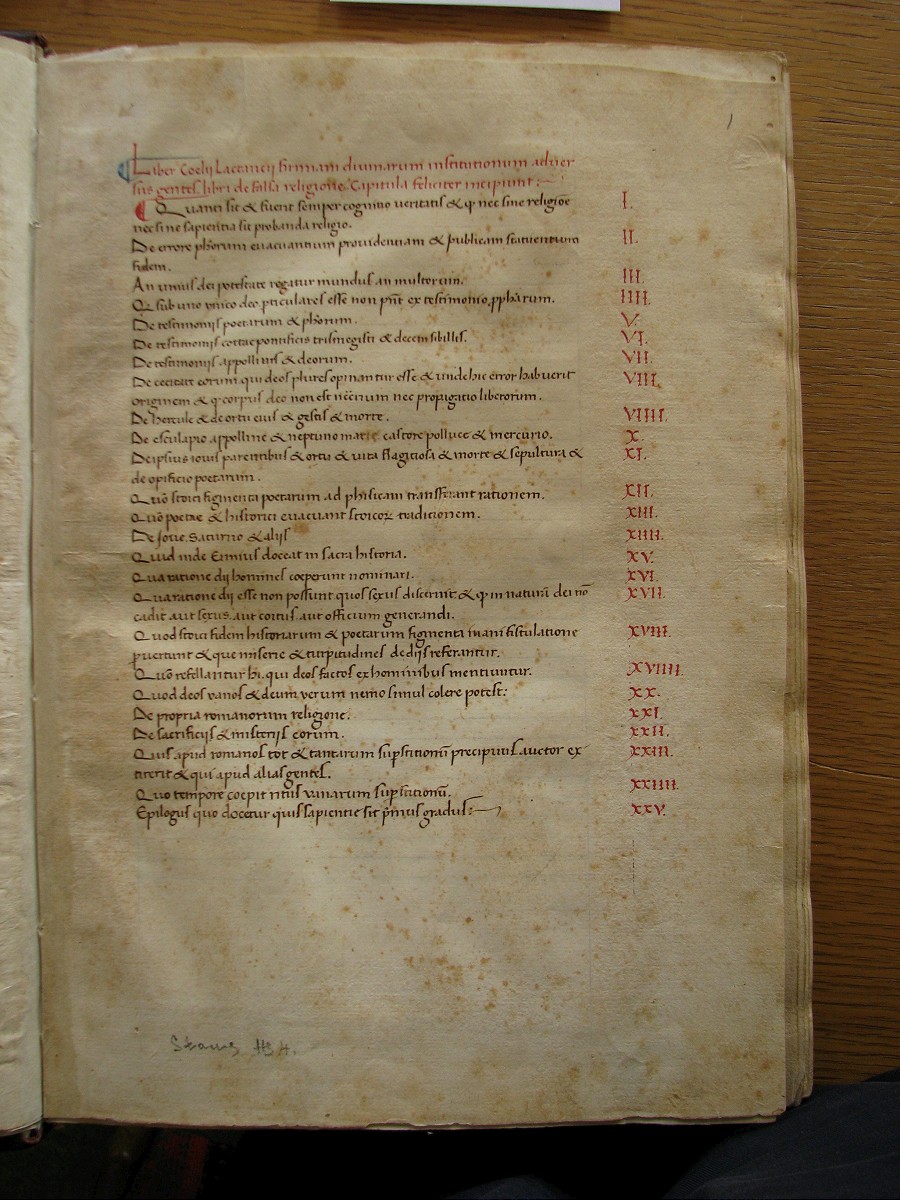 1
Liber Coelij Lactancij firmiani diuinarum institutionum aduer
sus gentes libri de falsa religione Capitula feliciter incipiunt:
Quanti sit & fuerit semper cognitio ueritatis & qͥ nec sine religiōe I.
nec sine sapientia sit probanda religio.
De errore ph̄orum euacuantium prouidentiam & publicam statuentium II.
fidem.
An unius dei potestate regatur mundus an multorum. III.
Q sub uno unico deo particulares esse non pn̄t ex testimonio ꝓphārum. IIII.
De testimonijs poetarum & ph̄orum. V.
De testimonijs cottae pontificis trismegisti & decem sibilles. VI.
De testimonijs appollinis & deorum. VII.
De cecitate eorum qui deos plures opinantur esse & unde hic error habuerit VIII.
originem & q corpus deo non est nēcrium nec propagatio liberorum.
De hercule & de ortu eius & gestis & morte. VIIII.
De esculapio appolline & neptuno marte castore polluce & mercurio. X.
De ipsius iouis parentibus & ortu & uita flagitiosa & morte & sepultura & XI.
de opificio poetarum.
Quō stoici figmenta poetarum ad phisicam transferant rationem. XII.
Quō poetae & historici euacuant stoicoꝝ traditionem. XIII.
De Ioue Saturno & alijs XIIII.
Quid inde Ennius doceat in sacra historia. XV.
Qua ratione dij homines coeperunt nominari. XVI.
Qua ratione dij esse non possunt quos sexus discernit & qͥ in naturā dei nō XVII.
cadit aut sexus aut coitus aut officium generandi.
Quod stoici fidem historiarum & poetarum figmenta inani fistulatione XVIII.
ꝑuertunt & que miserie & turpitudines de dijs referantur.
Quō refellantur hi, qui deos factos ex hominibus mentiuntur. XVIIII.
Quod deos uanos & deum uerum nemo simul colere potest: XX.
De propria romanorum religione. XXI.
De sacrificijs & misterijs eorum. XXII.
Quis apud romanos tot & tantarum suꝑstitionū precipuus auctor ex XXIII.
titerit & qui apud alias gentes.
Quo tempore coepit ritus uanarum suꝑstitionū. XXIIII.
Epilogus quo docetur quis sapientie sit p̄mus gradus: XXV.